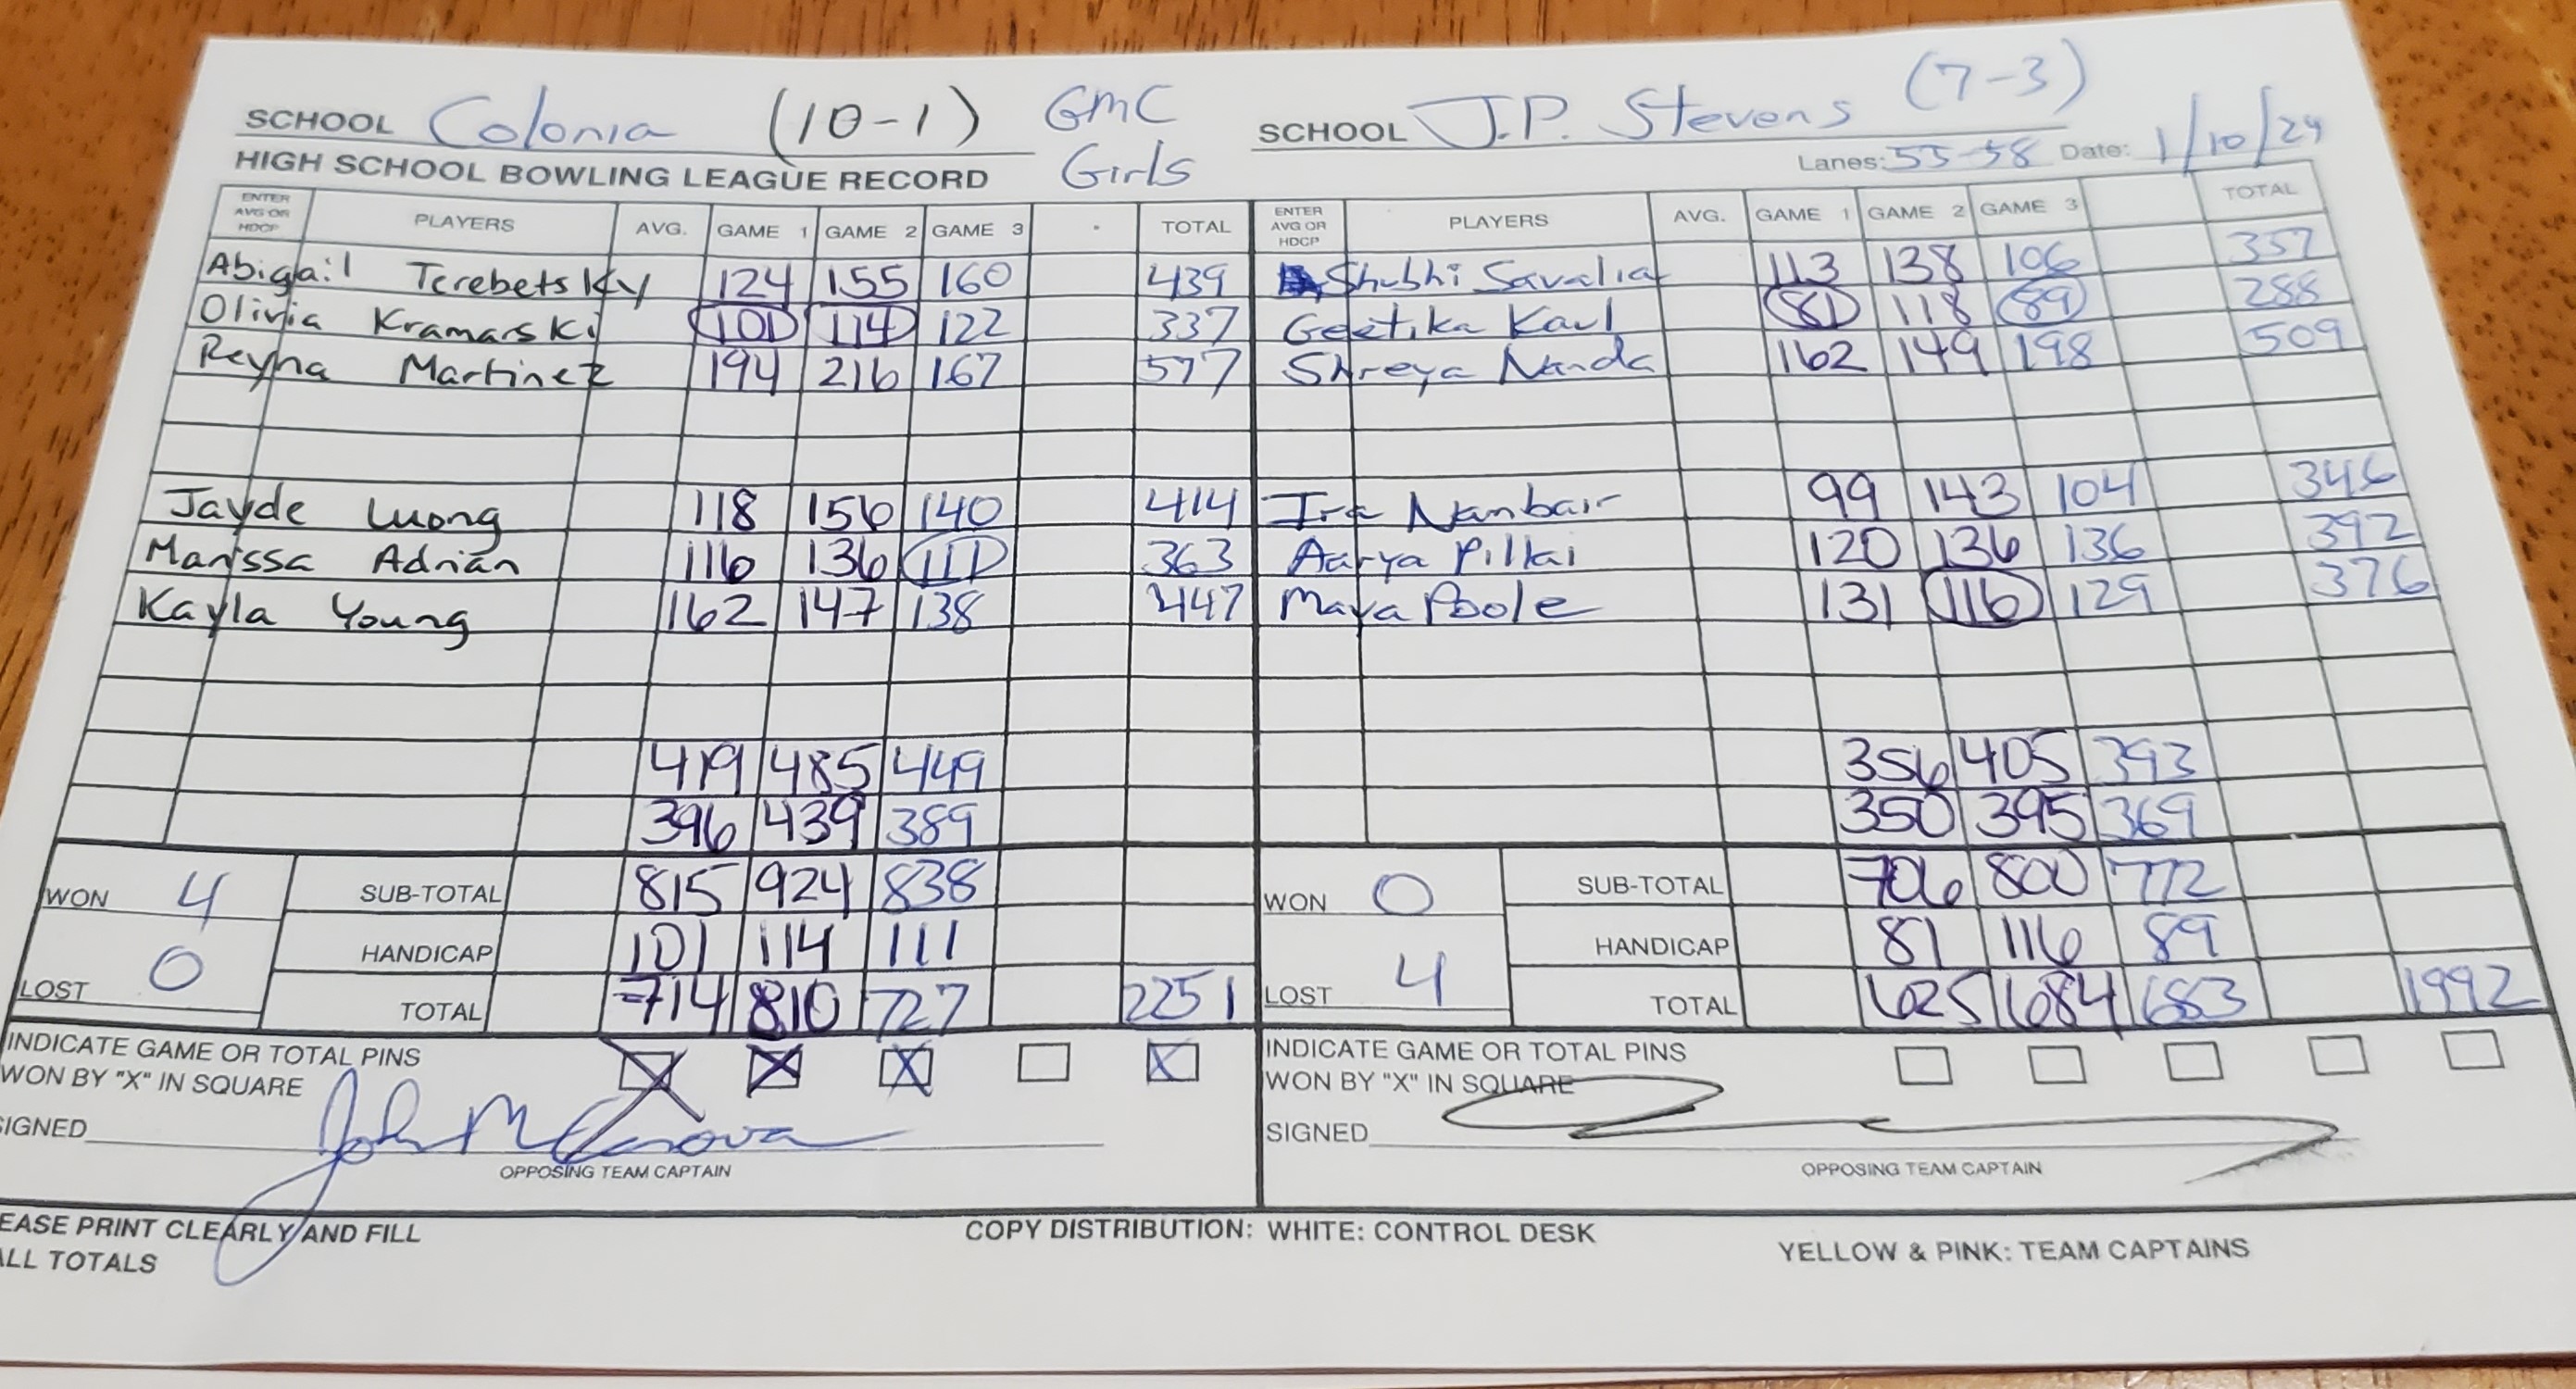 SCHOOL Colonia (10-1) GMC SCHOOL J.P. Stevens (7-3)
HIGH SCHOOL BOWLING LEAGUE RECORD Girls Lanes: 55-58 Date: 1/10/24
ENTER AVG OR HDCP PLAYERS AVG. GAME 1 GAME 2 GAME 3 TOTAL ENTER AVG OR HDCP PLAYERS AVG. GAME 1 GAME 2 GAME 3 TOTAL
Abigail Terebetsky 124 155 160 439 Shubhi Savalia 113 138 106 357
Olivia Kramarski 101 114 122 337 Geetika Kaul 81 118 89 288
Reyna Martinez 194 216 167 577 Shreya Nanda 162 149 198 509
Jayde Luong 118 156 140 414 Ira Nambair 99 143 104 346
Marissa Adrian 116 136 111 363 Aarya Pillai 120 136 136 392
Kayla Young 162 147 138 447 Maya Poole 131 116 129 376
419 485 449 356 405 393
396 439 389 350 395 369
WON 4 SUB-TOTAL 815 924 838 WON 0 SUB-TOTAL 706 800 772
HANDICAP 101 114 111 HANDICAP 81 116 89
LOST 0 TOTAL 714 810 727 2251 LOST 4 TOTAL 625 684 683 1992
INDICATE GAME OR TOTAL PINS INDICATE GAME OR TOTAL PINS
WON BY "X" IN SQUARE X X X X WON BY "X" IN SQUARE
SIGNED John SIGNED
OPPOSING TEAM CAPTAIN OPPOSING TEAM CAPTAIN
EASE PRINT CLEARLY AND FILL COPY DISTRIBUTION: WHITE: CONTROL DESK YELLOW & PINK: TEAM CAPTAINS
ALL TOTALS